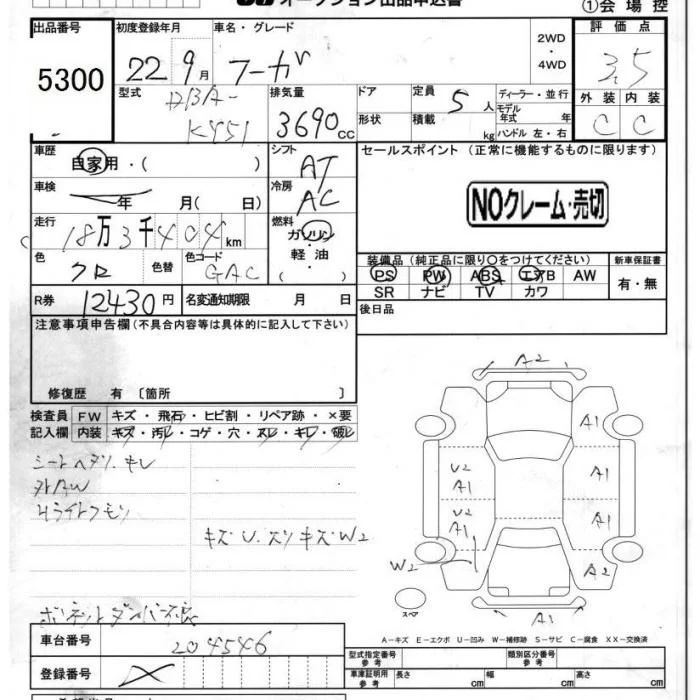 オークション出品申込書
①会場控
出品番号 初度登録年月 車名・グレード 評価点
5300 22 9月 フーガ 2WD ・ 4WD 3.5
型式 DBA-KY51 排気量 3690cc ドア 定員 5人 ディーラー・並行 外装 内装
形状 積載 kg モデル年式 年 ハンドル 左・右 C C
車歴 自家用・( ) シフト AT セールスポイント (正常に機能するものに限ります)
車検 年 月( 日) 冷房 AC
NOクレーム・売切
走行 18万3千404km 燃料 ガソリン・軽油・( )
色 クロ 色替 色コード GAC
装備品 (純正品に限り○をつけてください) 新車保証書
PS PW ABS エアB AW 有・無
SR ナビ TV カワ
R券 12430円 名変通知期限 月 日 後日品
注意事項申告欄(不具合内容等は具体的に記入して下さい)
修復歴 有 〔箇所 〕
検査員記入欄 FW キズ・飛石・ヒビ割・リペア跡・×要
内装 キズ・汚レ・コゲ・穴・スレ・キレ・破レ
シートヘタリ.キレ
外AW
Hライトクモリ
キズU.スリキズW2
ボンネットダンパー不良
A2
A1
U2 A1 A1
U2 A1 A1
W2 A2
スペア A1
A-キズ E-エクボ U-凹み W-補修跡 S-サビ C-腐食 XX-交換済
車台番号 204546
型式指定番号 参考 類別区分番号 参考
登録番号 車庫証明用 参考 長さ cm 幅 cm 高さ cm